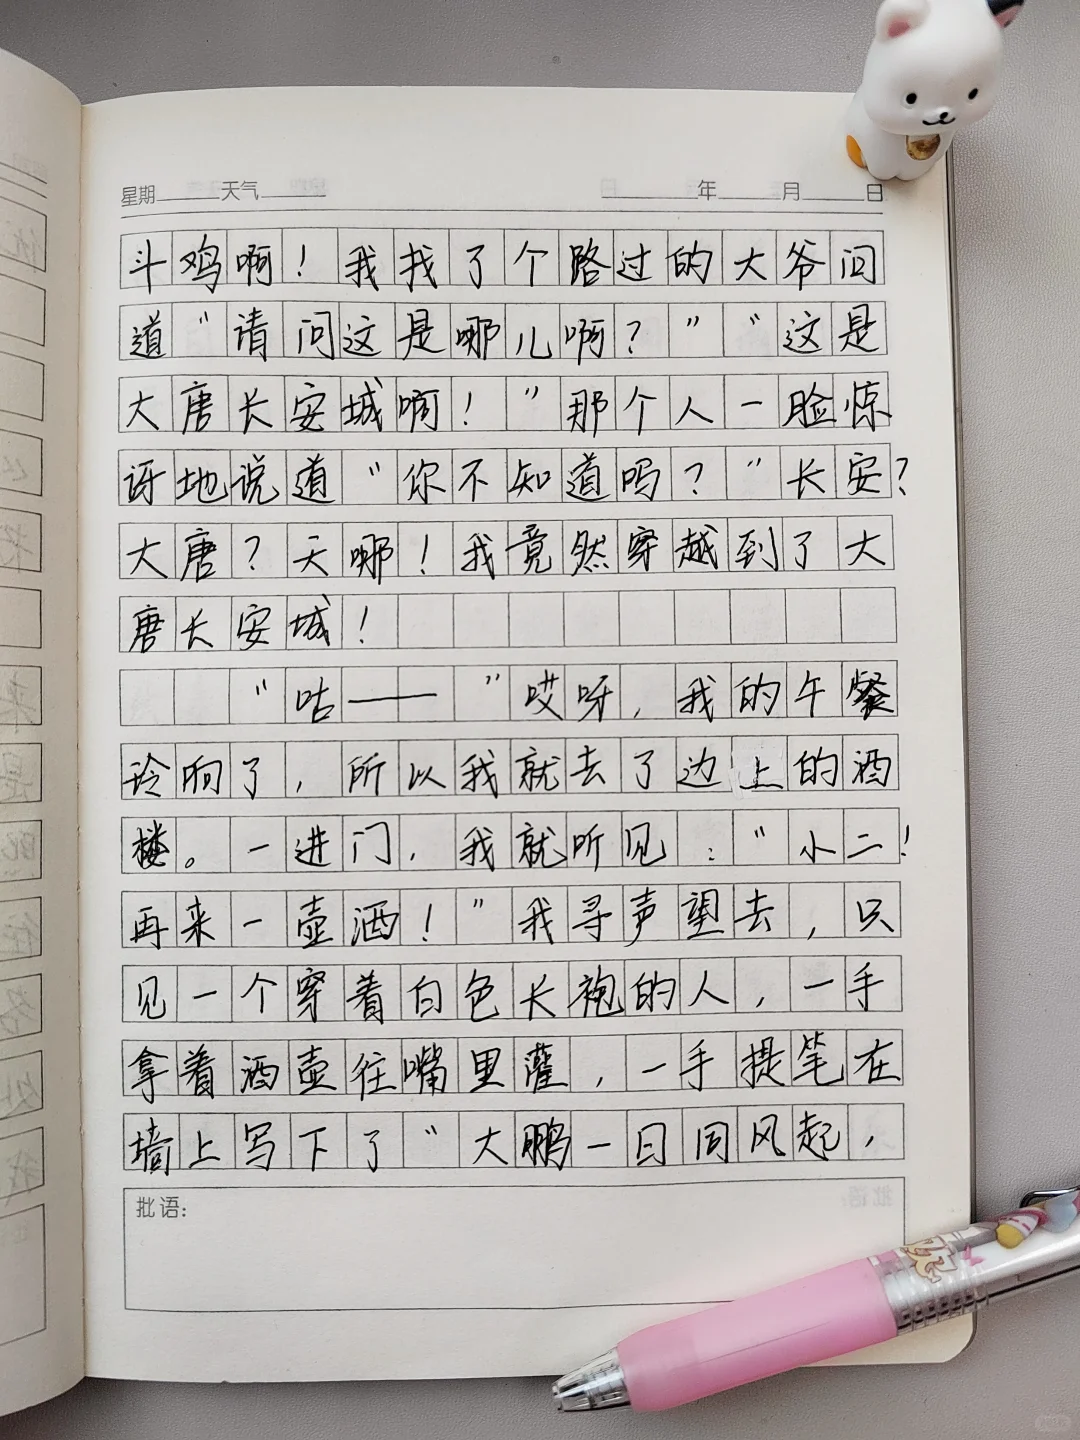 星期 天气 年 月 日
斗鸡啊！我找了个路过的大爷问
道“请问这是哪儿啊？”“这是
大唐长安城啊！”那个人一脸惊
讶地说道“你不知道吗？”长安？
大唐？天哪！我竟然穿越到了大
唐长安城！
“咕——”哎呀，我的午餐
铃响了，所以我就去了边上的酒
楼。一进门，我就听见：“小二！
再来一壶酒！”我寻声望去，只
见一个穿着白色长袍的人，一手
拿着酒壶往嘴里灌，一手提笔在
墙上写下了“大鹏一日同风起，
批语：